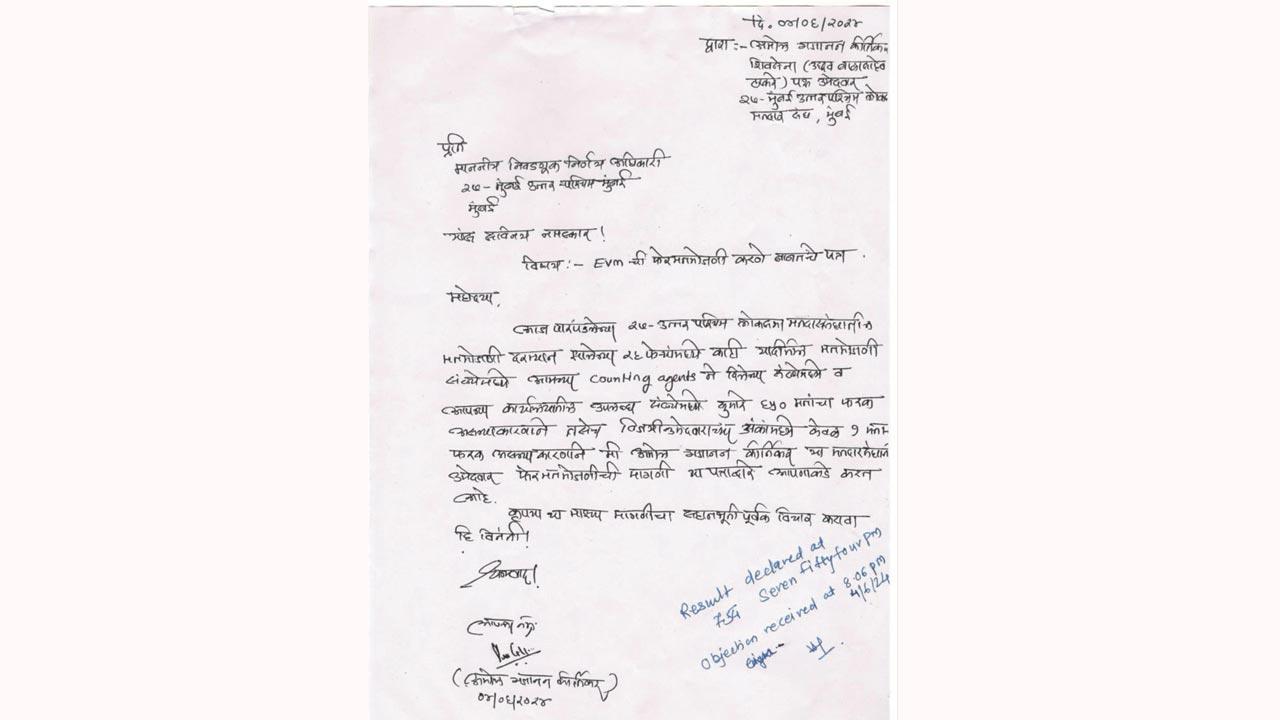 दि. ०४/०६/२०२४
द्वारा :- अमोल गजानन कीर्तिकर
शिवसेना (उद्धव बाळासाहेब
ठाकरे) पक्ष उमेदवार
२७- मुंबई उत्तर पश्चिम लोक
मतदार संघ, मुंबई
प्रति
माननीय निवडणूक निर्णय अधिकारी
२७- मुंबई उत्तर पश्चिम मुंबई
मुंबई
सविनय नमस्कार !
विषय :- EVM ची फेरमतमोजणी करणे बाबतचे पत्र .
महोदया,
आज पारपडलेल्या २७- उत्तर पश्चिम लोकसभा मतदारसंघातील
मतमोजणी दरम्यान झालेल्या २६ फेऱ्यांमध्ये काही मतमोजणी
संख्येमध्ये आमच्या counting agents ने दिलेल्या संख्येमध्ये व
आपल्या कार्यालयातील उपलब्ध संख्येमध्ये सुमारे ६५० मतांचा फरक
असल्याकारणाने तसेच विजयी उमेदवाराच्या अंकांमध्ये केवळ १ मत
फरक असल्या कारणाने मी अमोल गजानन कीर्तिकर या मतदारसंघातील
उमेदवार फेरमतमोजणीची मागणी या पत्राद्वारे आपणाकडे करत
आहे.
कृपया या माझ्या मागणीचा सहानभूती पूर्वक विचार करावा
हि विनंती!
धन्यवाद!
आपला नम्र
(अमोल गजानन कीर्तिकर)
०४/०६/२०२४
Result declared at
7.54 Seven fifty four pm
Objection received at 8.06 pm
4/6/24